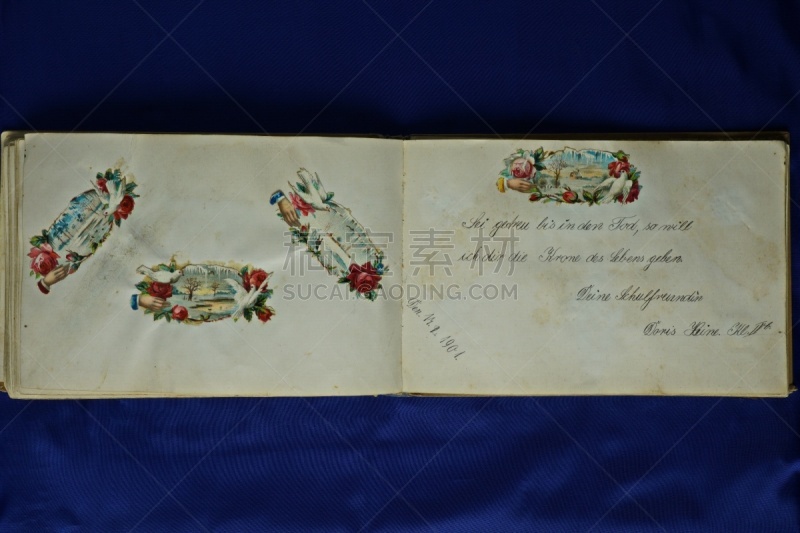 Sei getreu bis in den Tod, so will
ich dir die Krone des Lebens geben.
Deine Schulfreundin
Doris Heine. Kl.
Den 1901.
SUCAIBAODING.COM